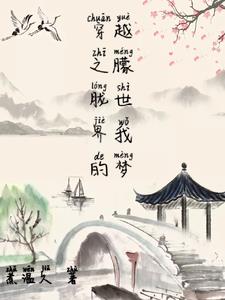 chuān yuè
穿越
zhī méng
之朦
lóng shì
胧世
jiè wǒ
界我
de mèng
的梦
温久 著